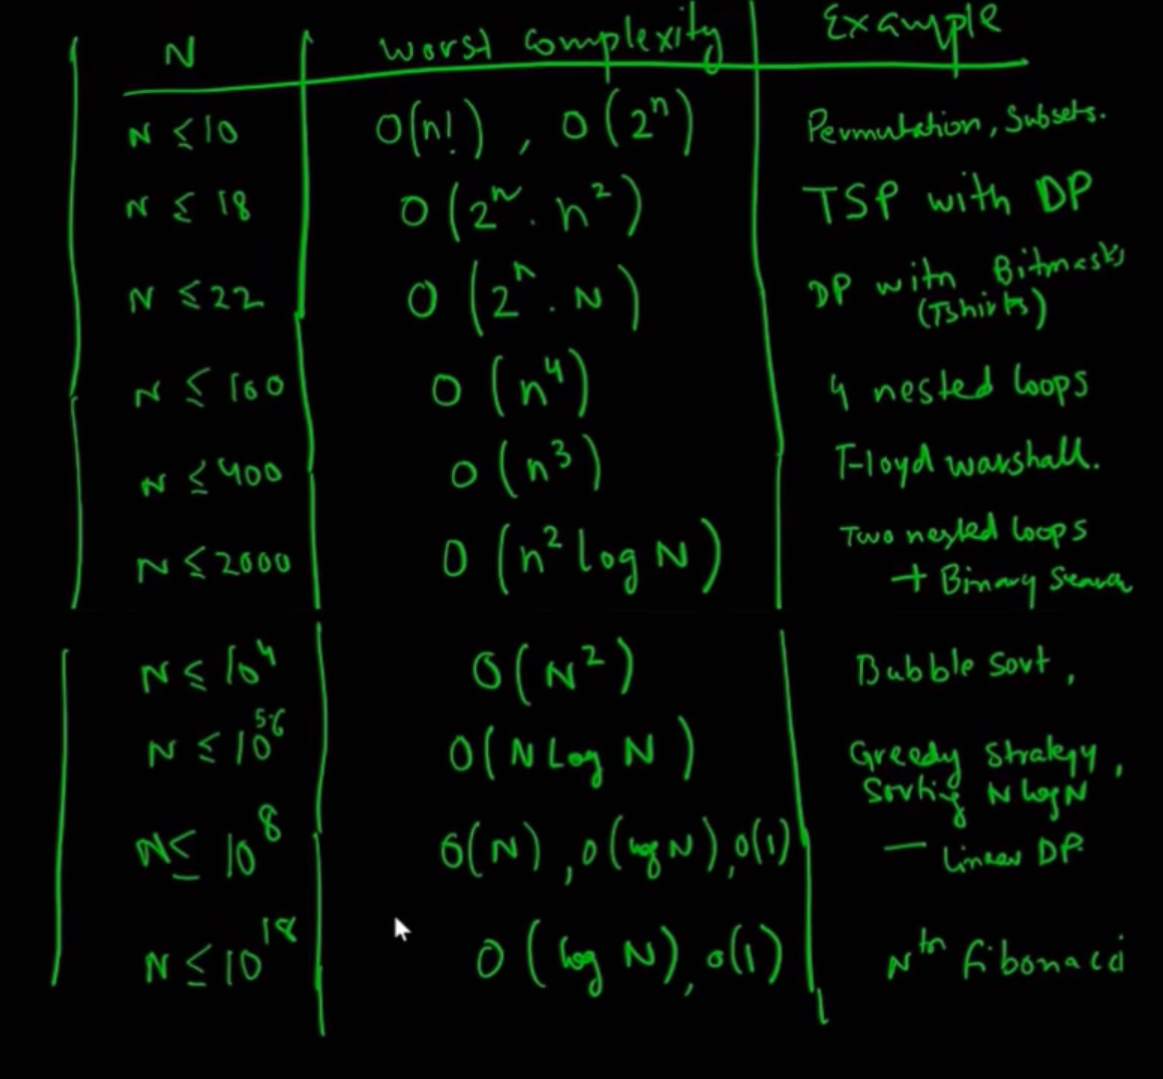 N worst complexity Example
N ≤ 10 O(n!) , O(2ⁿ) Permutation, Subsets.
N ≤ 18 O(2ᴺ · n²) TSP with DP
N ≤ 22 O(2ⁿ · N) DP with Bitmasks
(Tshirts)
N ≤ 100 O(n⁴) 4 nested loops
N ≤ 400 O(n³) Floyd warshall.
N ≤ 2000 O(n² log N) Two nested loops
+ Binary Search
N ≤ 10⁴ O(N²) Bubble Sort ,
N ≤ 10⁵⁻⁶ O(N Log N) Greedy Strategy ,
Sorting N log N
N ≤ 10⁸ O(N) , O(log N) , O(1) — Linear DP.
N ≤ 10¹⁸ O(log N) , O(1) Nth fibonacci